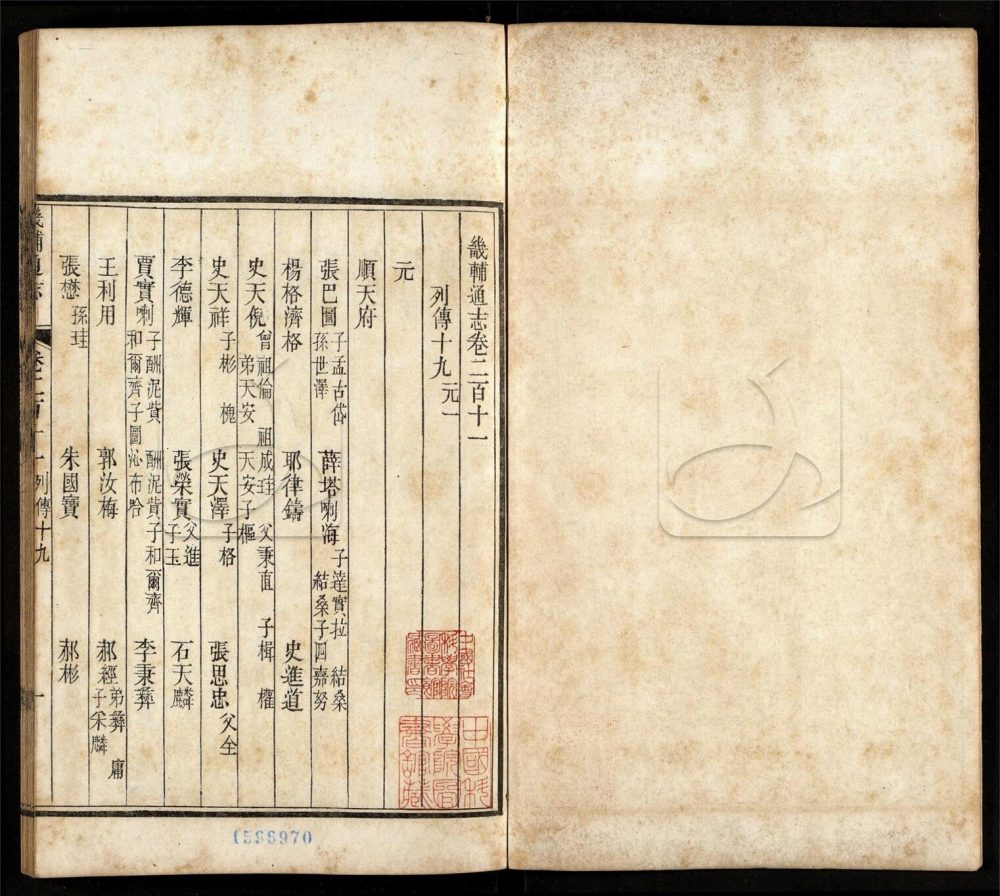 畿輔通志卷二百十一
列傳十九 元一
元
順天府
張巴圖 子孟古岱 孫世澤 薛塔喇海 子達實拉 結桑 結桑子四嘉努
楊格濟格 耶律鑄 史進道
史天倪 曾祖倫 祖成珪 父秉直 子楫 權 弟天安 天安子樞
史天祥 子彬 槐 史天澤 子格 張思忠 父全
李德輝 張榮實 父進 子玉 石天麟
賈實喇 子酬泥賫 酬泥賫子和爾齊 和爾齊子圖沁布哈 李秉彝
王利用 郭汝梅 郝經 弟彝 庸 子采麟
張懋 孫珪 朱國寶 郝彬
畿輔通志 卷二百十一 列傳十九 一
1566970